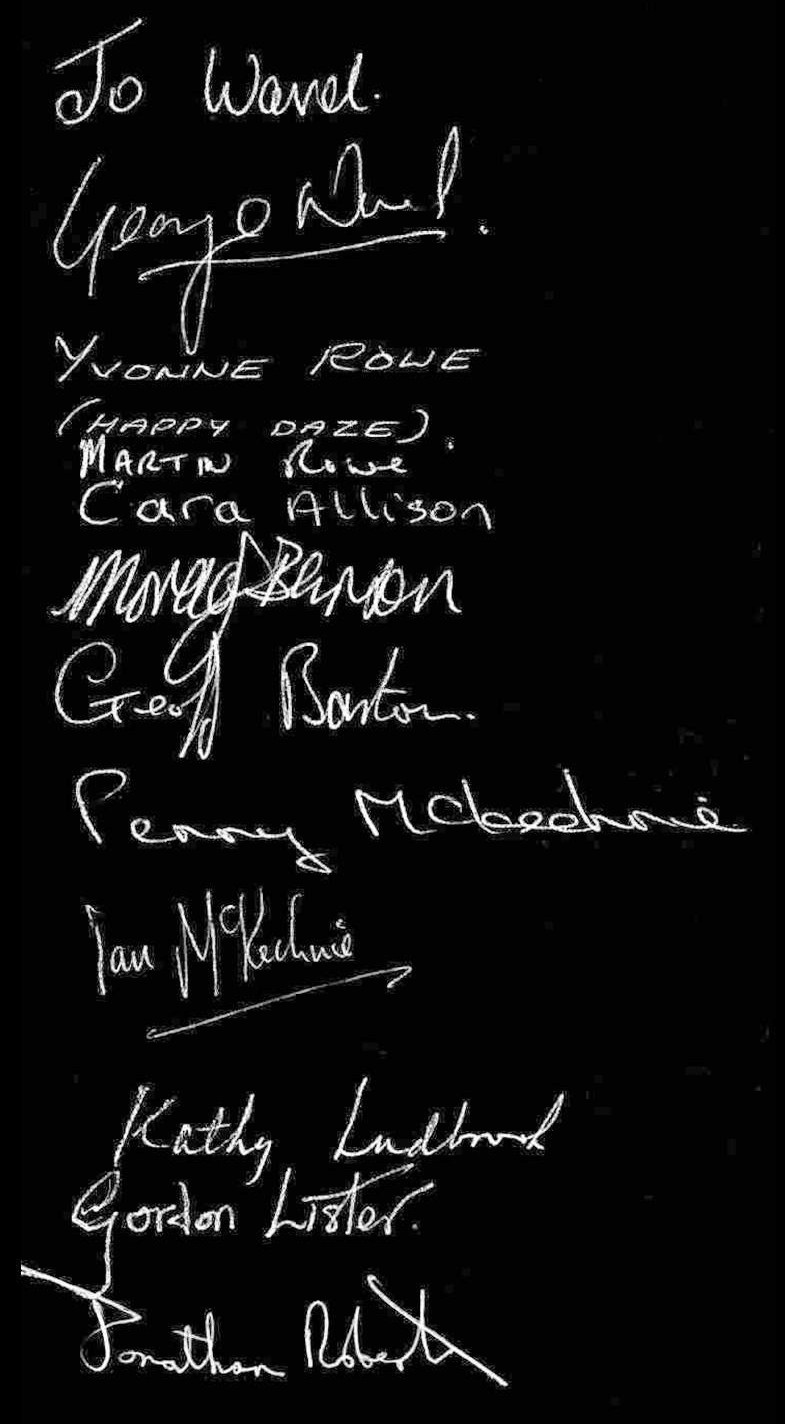 Jo Ward.
George Ward.
YVONNE ROWE
(HAPPY DAZE).
MARTIN Rowe
Cara Allison
Morag Benson
Geoff Barton.
Penny Mckechnie
Ian McKechnie
Kathy Ludbrook
Gordon Lister.
Jonathan Roberts